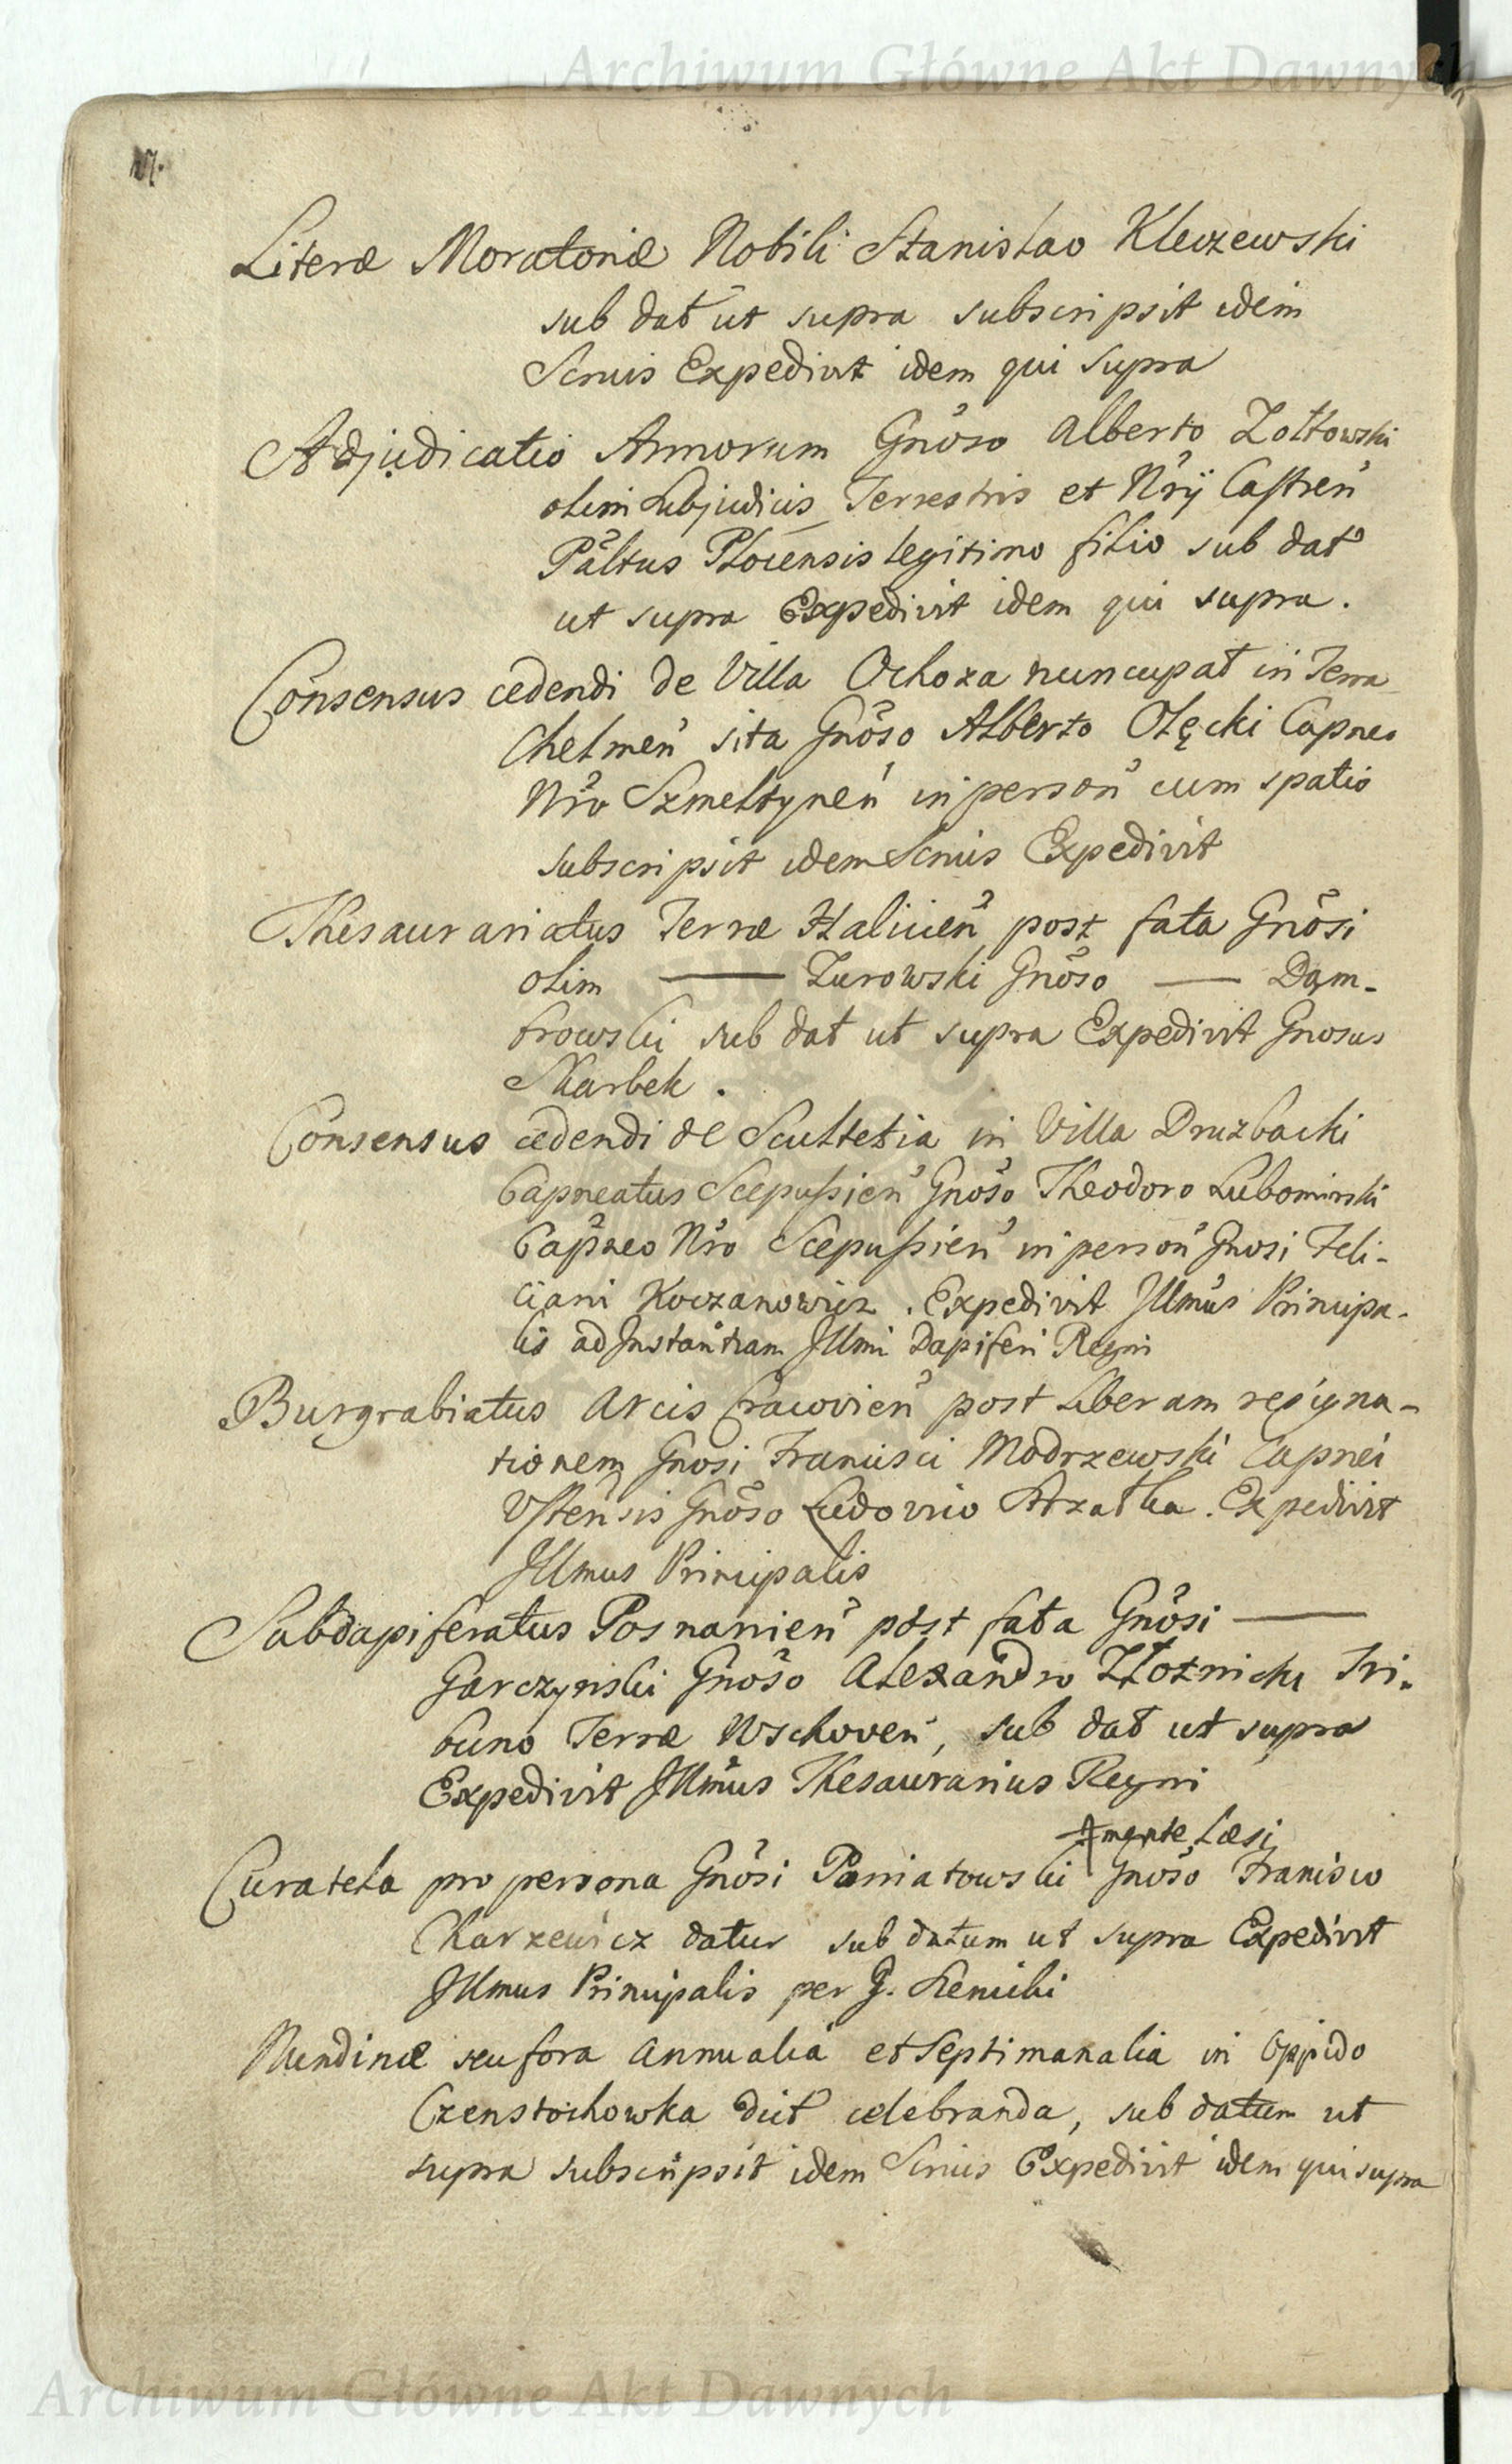 Archiwum Główne Akt Dawnych
Literæ Moratoriæ Nobili Stanislao Kleczewski
sub dat ut supra subscripsit idem
Scnius Expedivit idem qui supra
Adjudicatio Annorum Gnoso Alberto Zołtowski
olim Subjudicis Terrestris et Nrij Castren
Paltus Plocensis legitimo filio sub dat
ut supra Expedivit idem qui supra.
Consensus cedendi de Villa Ochoza nuncupat in Terra
Chelmen sita Gnoso Alberto Olęcki Capneo
Nro Szmeltynen in person cum spatio
subscripsit idem Scnius Expedivit
Thesaurariatus Terræ Halicien post fata Gnosi
olim —— Zurowski Gnoso —— Dąm-
browski sub dat ut supra Expedivit Gnosus
Skarbek.
Consensus cedendi de Scultetia in Villa Druzbachi
Capneatus Scepusien Gnoso Theodoro Lubomirski
Capneo Nro Scepusien in person Gnosi Feli-
ciani Koczanowicz. Expedivit Illmus Principa-
lis ad Instantiam Illmi Dapiferi Regni
Burgrabiatus Arcis Cracovien post liberam resigna-
tionem Gnosi Francisci Modrzewski Capnei
Ustensis Gnoso Ludovico Strzałka. Expedivit
Illmus Principalis
Subdapiferatus Posnanien post fata Gnosi ——
Garczynski Gnoso Alexandro Złotnicki Tri-
buno Terræ Wschoven, sub dat ut supra
Expedivit Illmus Thesaurarius Regni
mente Læsi
Curatela pro persona Gnosi Poniatowski Gnoso Francisco
Charzewicz datur sub datum ut supra Expedivit
Illmus Principalis per G.
Nundinæ seu fora annualia et Septimanalia in Oppido
Czenstochowka dict celebranda, sub datum ut
supra subscripsit idem Scnius Expedivit idem qui supra
Archiwum Główne Akt Dawnych